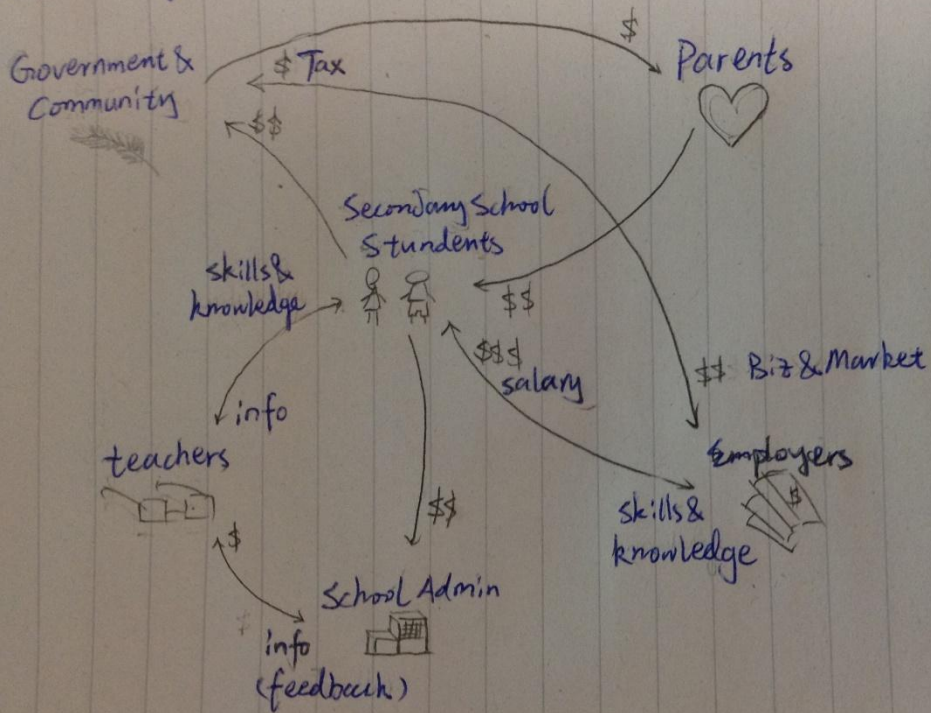 $
Government &
Community
$ Tax
Parents
$$
Secondary School
Stundents
skills &
knowledge
$$
$$$
salary
$$ Biz & Market
info
teachers
Employers
$
$$
skills &
knowledge
$
School Admin
info
(feedback)